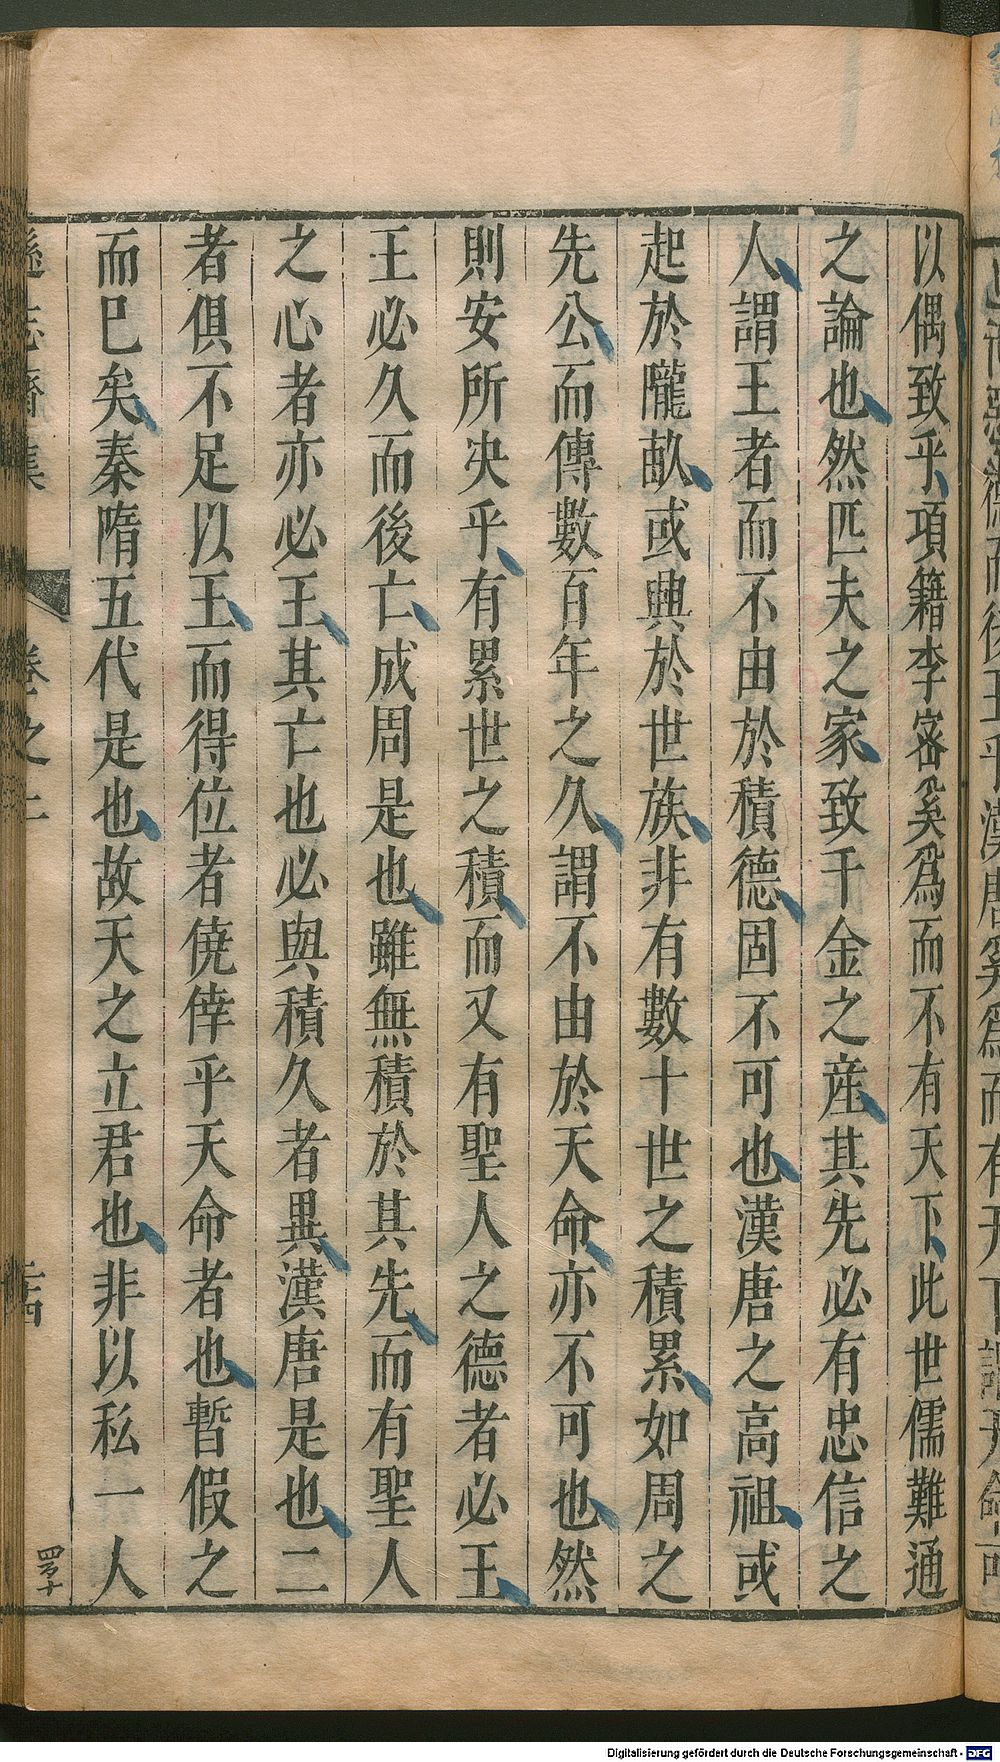 以偶致乎項籍李密奚爲而不有天下此世儒難通
之論也然匹夫之家致千金之産其先必有忠信之
人謂王者而不由於積德固不可也漢唐之高祖或
起於隴畝或興於世族非有數十世之積累如周之
先公而傳數百年之久謂不由於天命亦不可也然
則安所決乎有累世之積而又有聖人之德者必王
王必久而後亡成周是也雖無積於其先而有聖人
之心者亦必王其亡也必與積久者異漢唐是也二
者俱不足以王而得位者僥倖乎天命者也暫假之
而已矣秦隋五代是也故天之立君也非以私一人
遜志齋集
卷之二
Digitalisierung gefördert durch die Deutsche Forschungsgemeinschaft - DFG